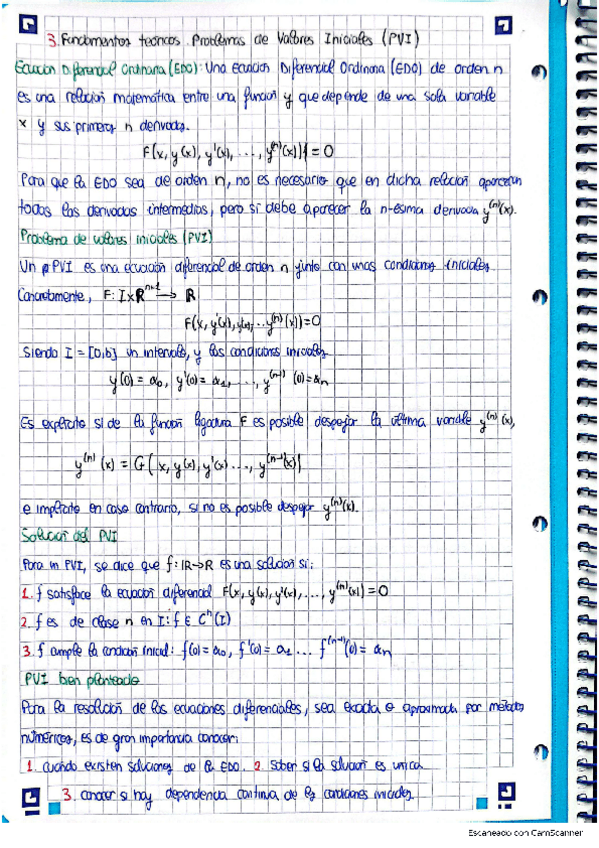 3. Fundamentos teóricos. Problemas de Valores Iniciales (PVI)
Ecuación Diferencial Ordinaria (EDO): Una Ecuación Diferencial Ordinaria (EDO) de orden n
es una relación matemática entre una función y que depende de una sola variable
x y sus primeras n derivadas.
F(x, y(x), y'(x), ..., y^(n)(x)) = 0
Para que la EDO sea de orden n, no es necesario que en dicha relación aparezcan
todas las derivadas intermedias, pero si debe aparecer la n-ésima derivada y^(n)(x).
Problema de valores iniciales (PVI)
Un PVI es una ecuación diferencial de orden n junto con unas condiciones iniciales.
Concretamente, F: I×R^(n+1) → R
F(x, y'(x), y(x), ... y^(n)(x)) = 0
Siendo I = [0,b] un intervalo, y las condiciones iniciales
y(0) = α0, y'(0) = α1, ..., y^(n-1) (0) = αn
Es explícito si de la función ligadura F es posible despejar la última variable y^(n)(x),
y^(n)(x) = G(x, y(x), y'(x) ..., y^(n-1)(x))
e implícito en caso contrario, si no es posible despejar y^(n)(x).
Solución del PVI
Para un PVI, se dice que f: IR→R es una solución si:
1. f satisface la ecuación diferencial F(x, y(x), y'(x), ..., y^(n)(x)) = 0
2. f es de clase n en I: f ∈ C^n(I)
3. f cumple la condición inicial: f(0) = α0, f'(0) = α1 ... f^(n-1)(0) = αn
PVI bien planteado
Para la resolución de las ecuaciones diferenciales, sea exacta o aproximada por métodos
numéricos, es de gran importancia conocer:
1. Cuándo existen soluciones de la EDO. 2. Saber si la solución es única.
3. Conocer si hay dependencia continua de las condiciones iniciales.
Escaneado con CamScanner